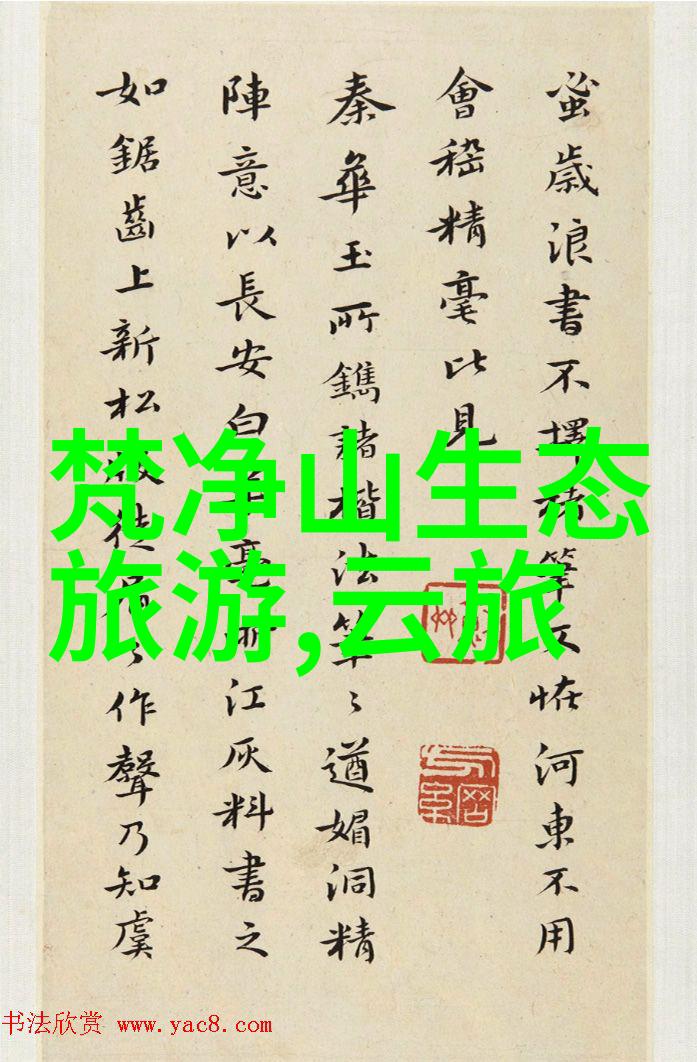 蚤歲浪書不擇筆又恠河東不用
會稽精毫比見
秦華玉所鐫諸楷法筆〻遒媚洞精
陣意以長安白毫江灰料書之
如鋸齒上新松徒作聲乃知虞
梵净山生态
旅游,云旅
书法欣赏 www.yac8.com